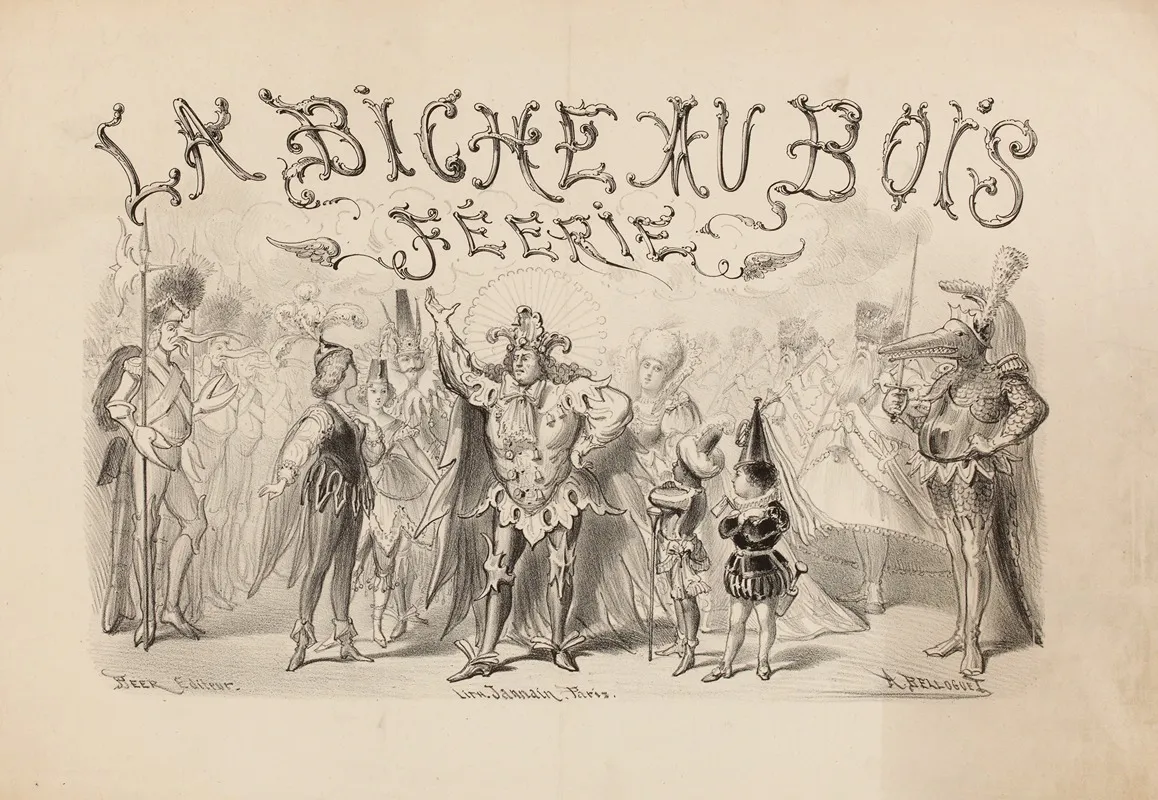 LA BICHE AU BOIS
FÉERIE
Lith. Jannain. Paris.
A. BELLOGUET